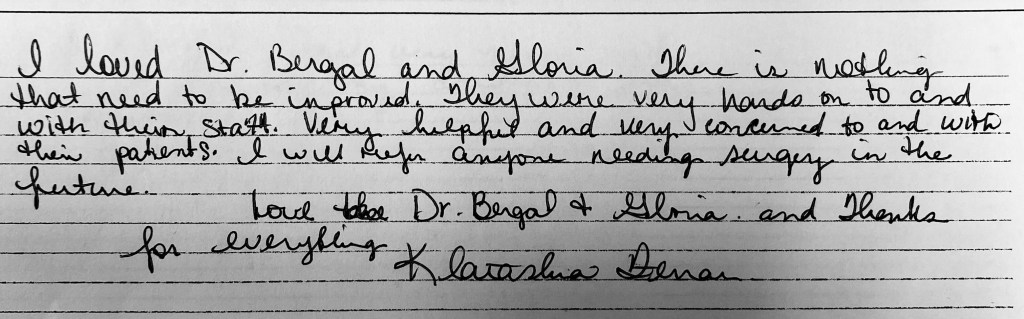 I loved Dr. Bergal and Gloria. There is nothing
that need to be inproved. They were very hands on to and
with their staff. Very helpful and very concerned to and with
their patients. I will refer anyone needing surgery in the
furture.
Love Dr. Bergal & Gloria. and Thanks
for everything